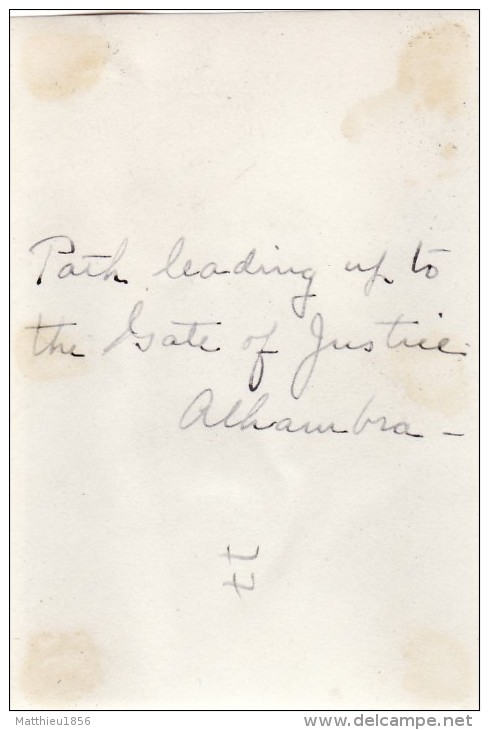 Path leading up to
the Gate of Justice
Alhambra –
77
Matthieu1856
www.delcampe.net